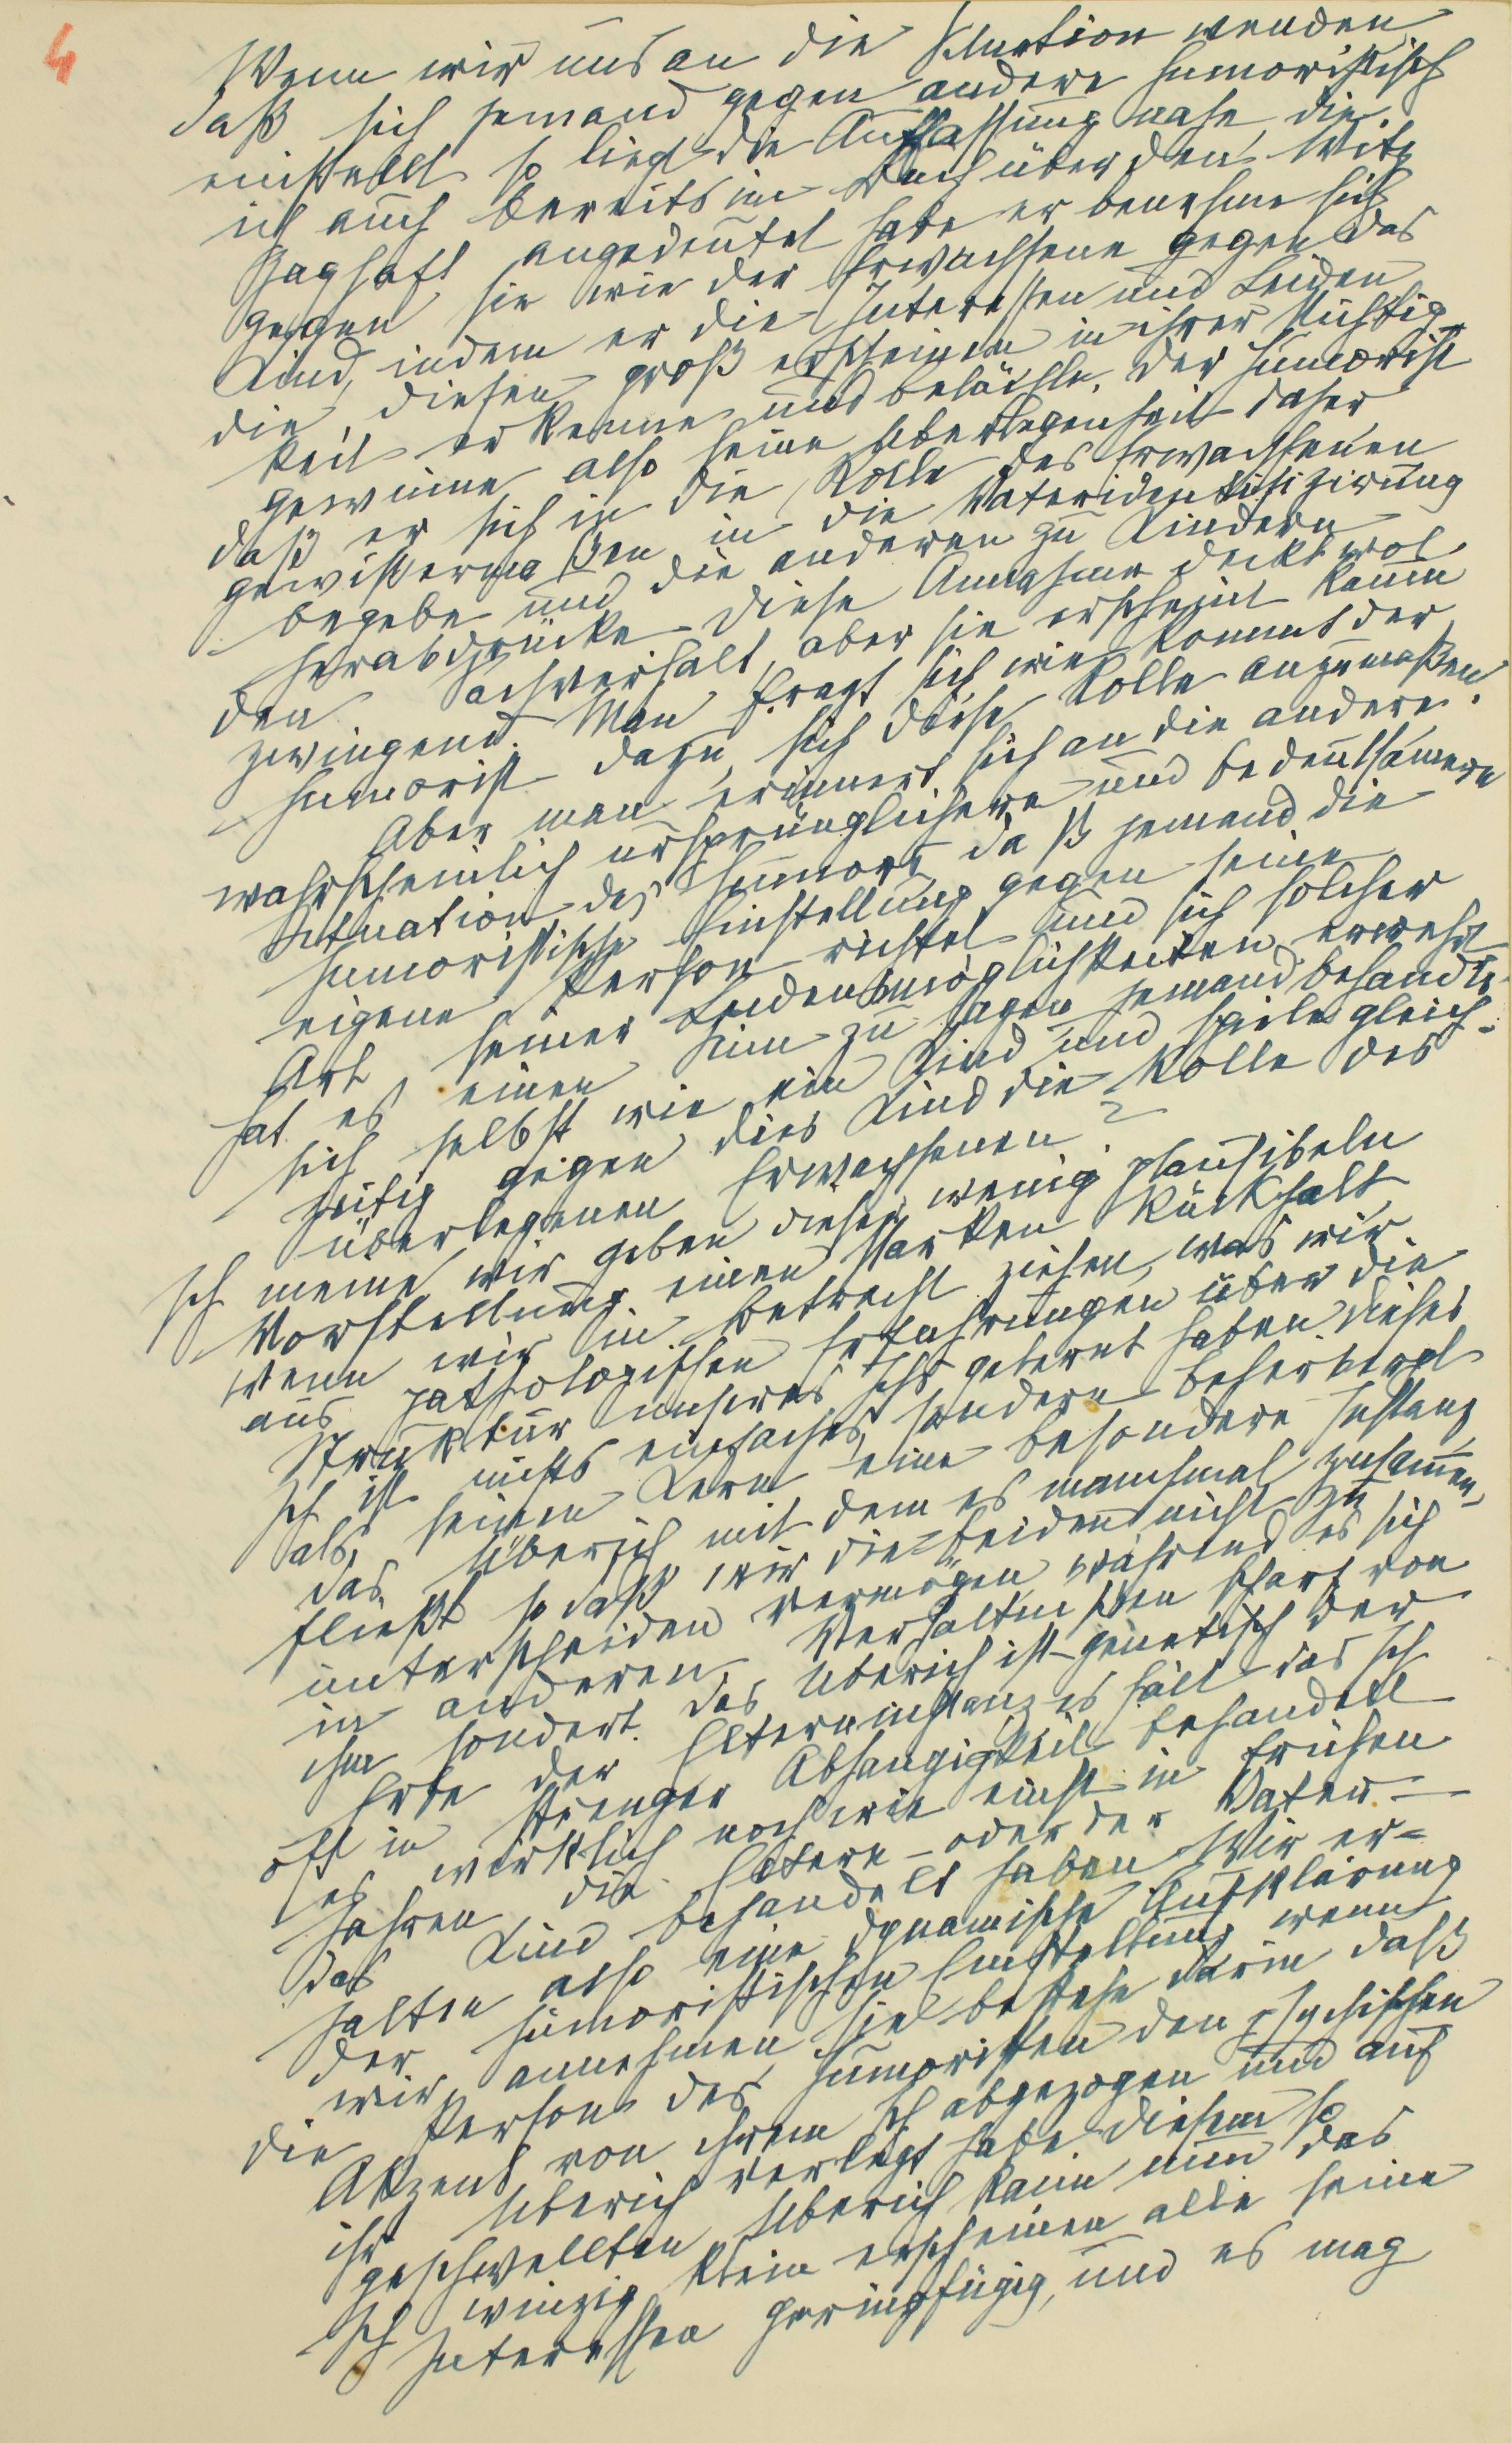 4
Wenn wir uns an die Situation wenden
daß sich jemand gegen andere humoristisch
einstellt so liegt die Auffassung nahe, die
ich auch bereits im Buch über den Witz
zaghaft angedeutet habe er benehme sich
gegen sie wie der Erwachsene gegen das
Kind, indem er die Interessen und Leiden
die diesen groß erscheinen in ihrer Nichtig
keit erkenne und belächle. Der Humorist
gewinne also seine Überlegenheit daher
daß er sich in die Rolle des Erwachsenen
gewissermaßen in die Vateridentifizirung
begebe und die anderen zu Kindern
herabdrücke. Diese Annahme deckt wol
den Sachverhalt, aber sie erscheint kaum
zwingend. Man fragt sich wie kommt der
Humorist dazu, sich diese Rolle anzumaßen.
Aber man erinnert sich an die andere,
wahrscheinlich ursprünglichere und bedeutsamere
Situation des Humors, daß jemand die
humoristische Einstellung gegen seine
eigene Person richtet und sich solcher
Art seiner Leidensmöglichkeiten erwehrt
hat es einen Sinn zu sagen jemand behandle
sich selbst wie ein Kind und spiele gleich-
zeitig gegen dies Kind die Rolle des
überlegenen Erwachsenen?
Ich meine wir geben dieser wenig plausibeln
Vorstellung einen starken Rückhalt
wenn wir in Betracht ziehen, was wir
aus pathologischen Erfahrungen über die
Struktur unseres Ichs gelernt haben. Dieses
Ich ist nichts einfaches, sondern beherbergt
als seinen Kern eine besondere Instanz
das Überich mit dem es manchmal zusammen-
fließt so daß wir die beiden nicht zu
unterscheiden vermögen, während es sich
in anderen Verhältnissen scharf von
ihm sondert. Das Überich ist genetisch der
Erbe der Elterninstanz es hält das Ich
oft in strenger Abhängigkeit behandelt
es wirklich noch wie einst in frühen
Jahren die Eltern – oder der Vater –
das Kind behandelt haben. Wir er=
halten also eine dynamische Aufklärung
der humoristischen Einstellung wenn
wir annehmen sie bestehe darin daß
die Person des Humoristen den psychischen
Akzent von ihrem Ich abgezogen und auf
ihr Überich verlegt habe. Diesem so
geschwellten Überich kann nun das
Ich winzig klein erscheinen alle seine
Interessen geringfügig, und es mag